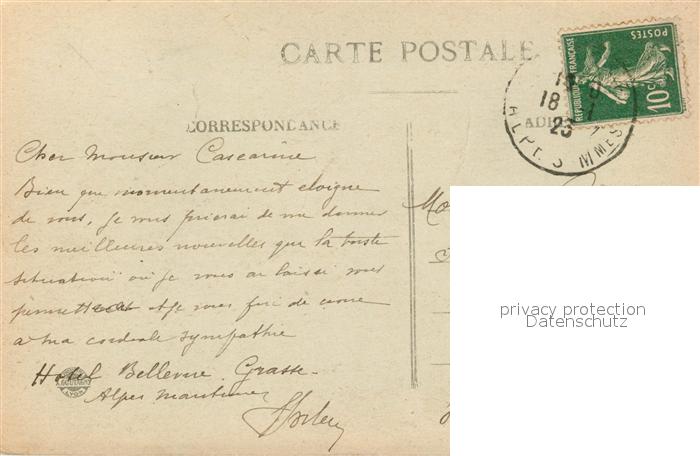 CARTE POSTALE
POSTES
REPUBLIQUE FRANÇAISE
10c
18 - 1
23
ALPES MMES
CORRESPONDANCE
AD
Cher Monsieur Cascarine
Bien que momentanement eloigne
de vous, je vous prierai de me donner
les meilleures nouvelles que la triste
situation où je vous ai laissé vous
permettent et je vous prie de croire
a ma cordiale sympathie
Hotel Bellevue Grasse.
Alpes maritimes
Mo
LYON
privacy protection
Datenschutz